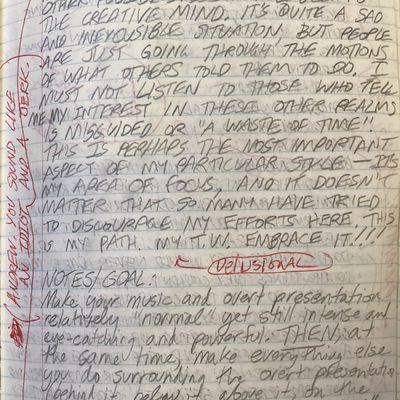 THE CREATIVE MIND. IT'S QUITE A SAD
AND INEXCUSIBLE SITUATION BUT PEOPLE
ARE JUST GOING THROUGH THE MOTIONS
OF WHAT OTHERS TOLD THEM TO DO. I
MUST NOT LISTEN TO THOSE WHO TELL
ME MY INTEREST IN THESE OTHER REALMS
IS MISGUIDED OR "A WASTE OF TIME"!
THIS IS PERHAPS THE MOST IMPORTANT
ASPECT OF MY PARTICULAR STYLE — IT'S
MY AREA OF FOCUS, AND IT DOESN'T
MATTER THAT SO MANY HAVE TRIED
TO DISCOURAGE MY EFFORTS HERE. THIS
IS MY PATH. MY T.W. EMBRACE IT!!!
DELUSIONAL
NOTES/GOAL:
Make your music and overt presentation
relatively "normal" yet still intense and
eye-catching and powerful. THEN, at
the same time, make everything else
you do surrounding the overt presentation
behind it, below it, above it, on the
ANDREW, YOU SOUND LIKE
AN IDIOT AND A JERK.